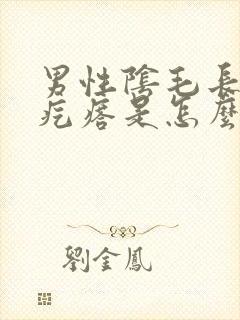 男性陰毛長
疙瘩是怎麼
劉金鳳